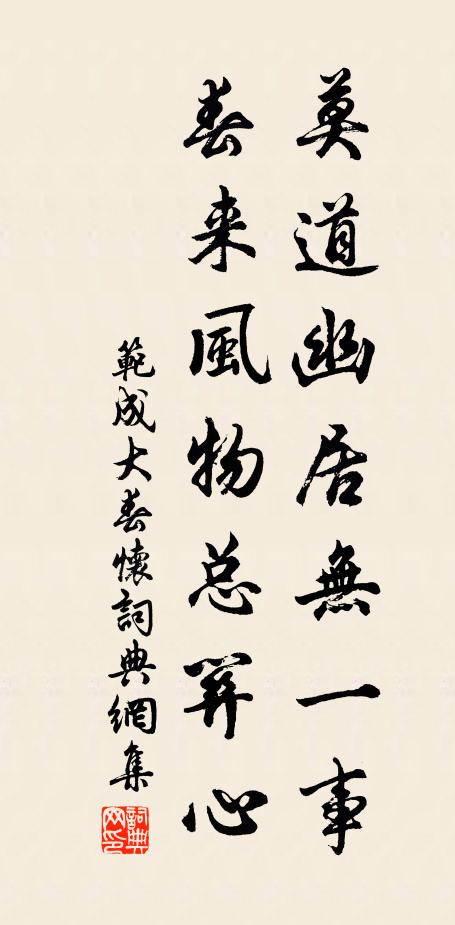 莫道幽居無一事
春来風物总關心
範成大春懷詞典網集
詞典网印